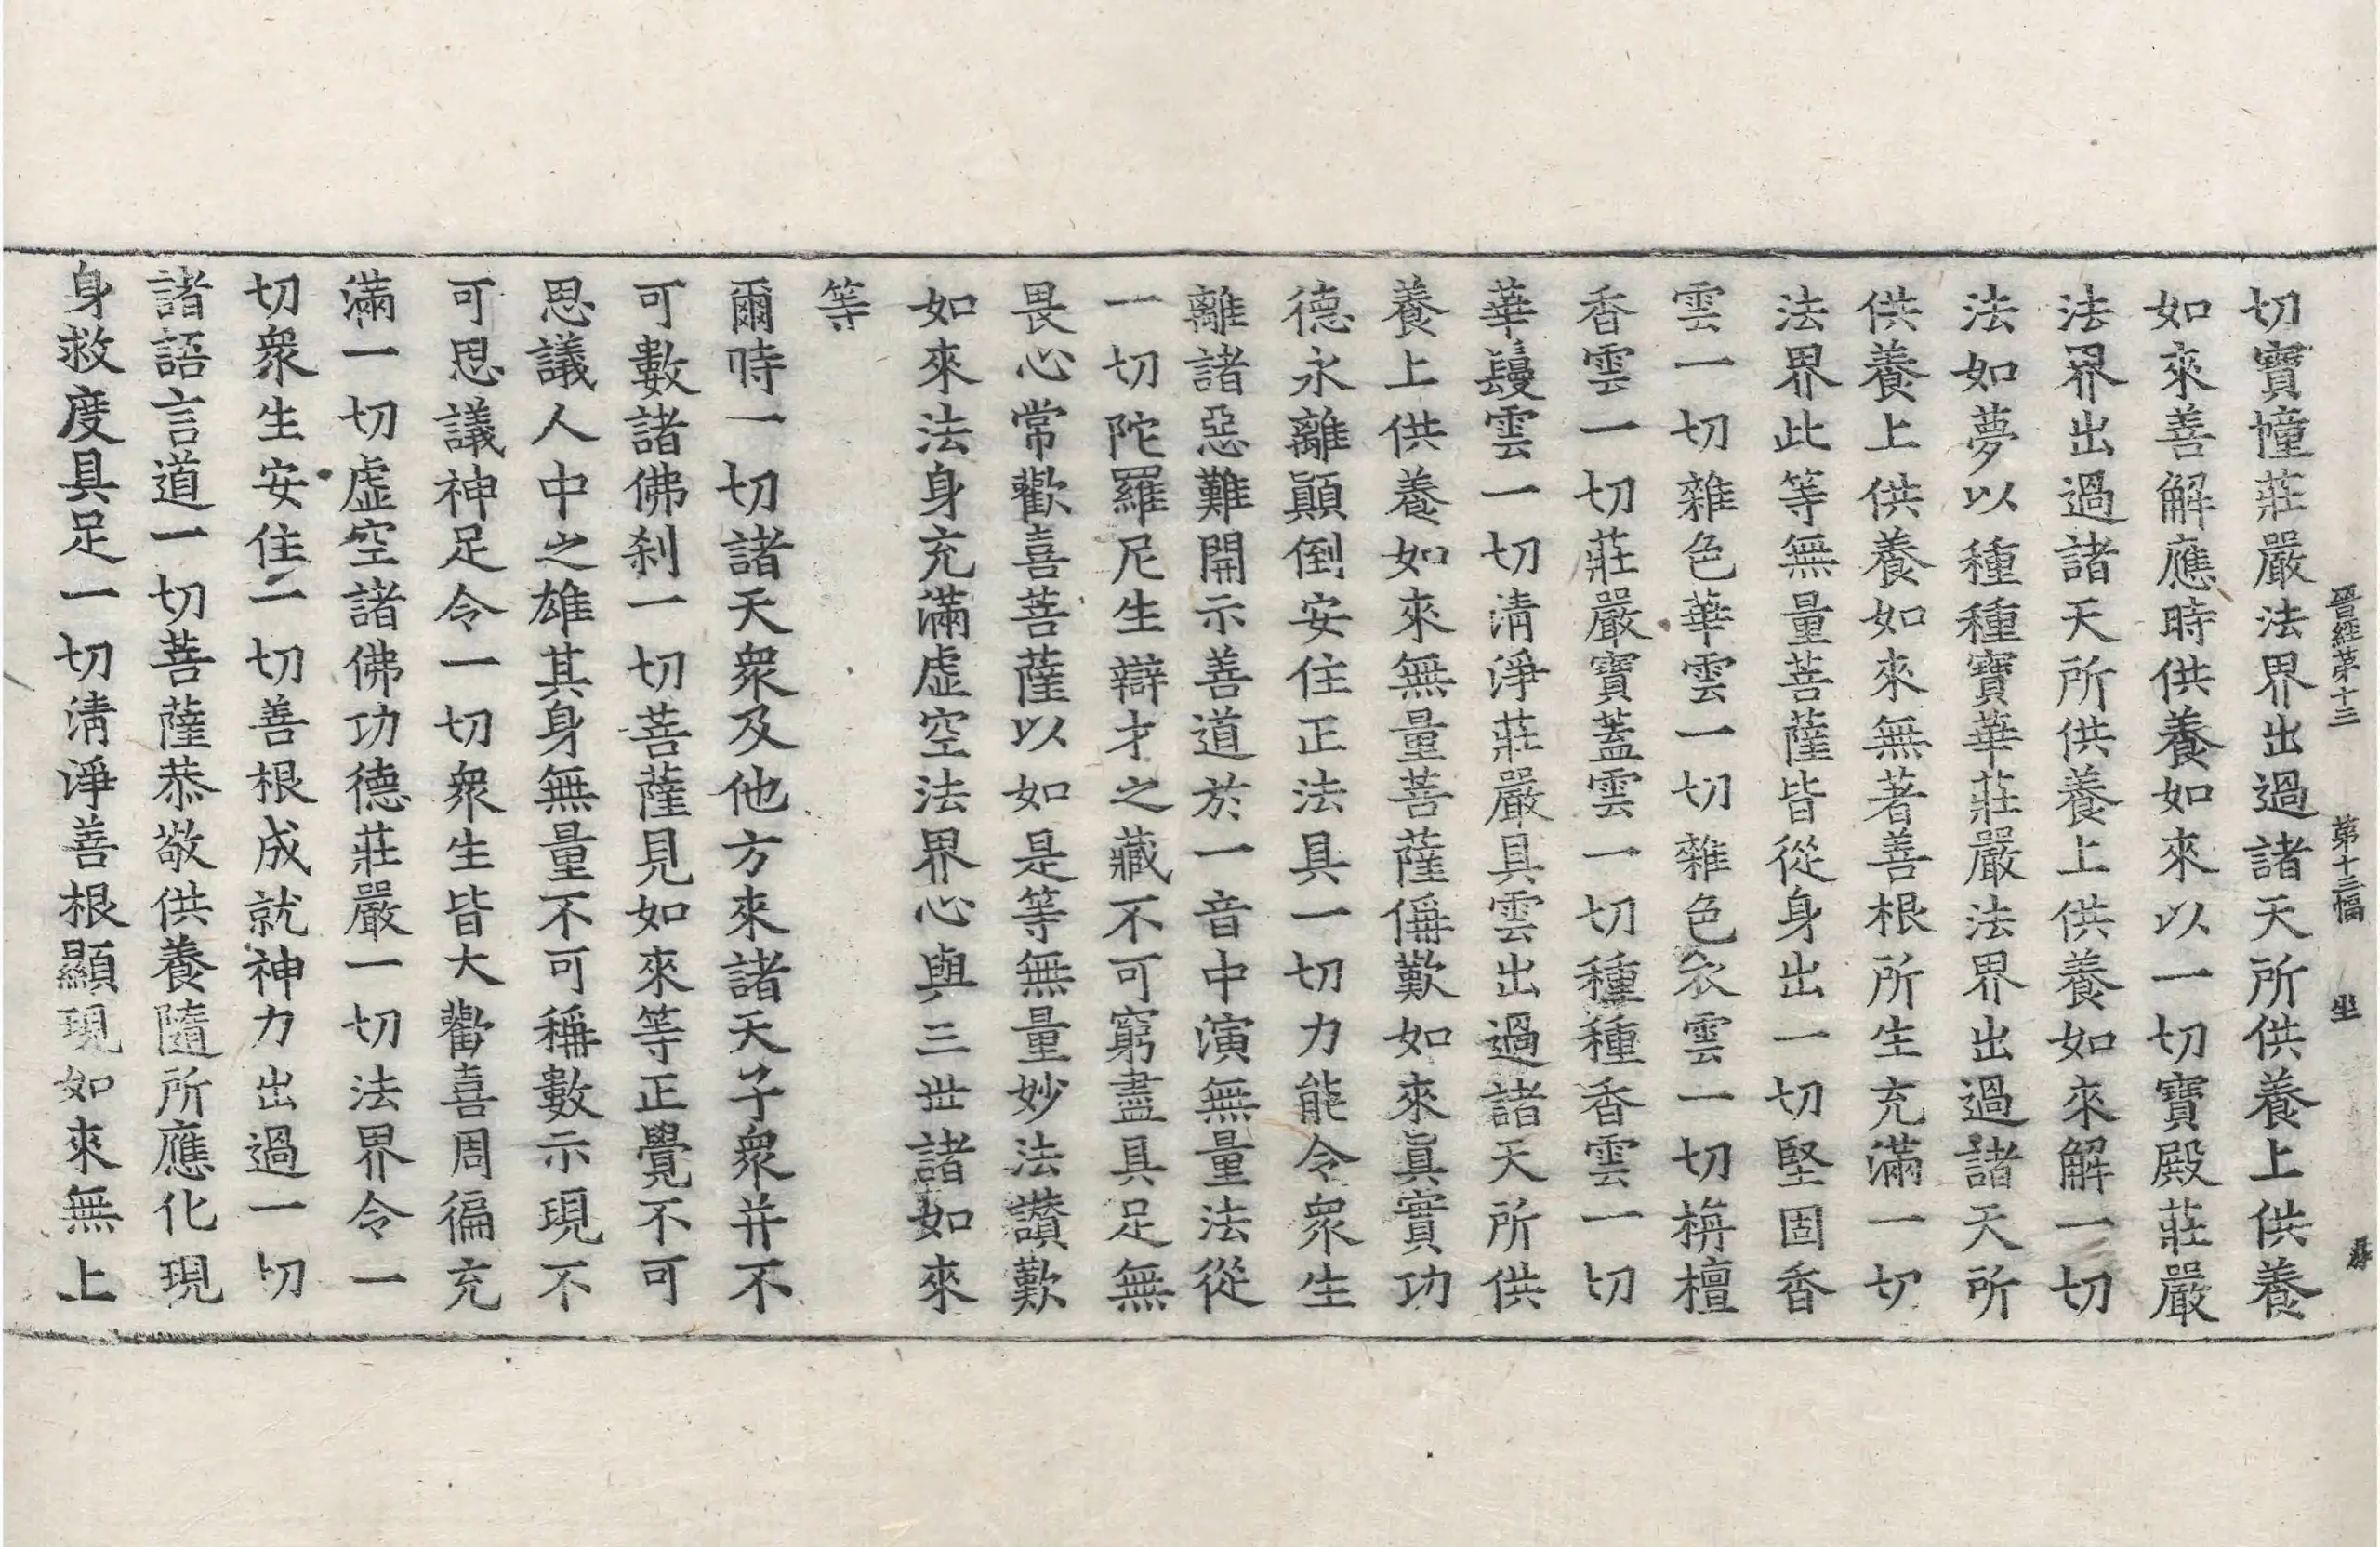 晉經第十三 第十三幅 坐
切寶幢莊嚴法界出過諸天所供養上供養
如來善解應時供養如來以一切寶殿莊嚴
法界出過諸天所供養上供養如來解一切
法如夢以種種寶華莊嚴法界出過諸天所
供養上供養如來無著善根所生充滿一切
法界此等無量菩薩皆從身出一切堅固香
雲一切雜色華雲一切雜色衣雲一切栴檀
香雲一切莊嚴寶蓋雲一切種種香雲一切
華鬘雲一切淸淨莊嚴具雲出過諸天所供
養上供養如來無量菩薩偁歎如來眞實功
德永離顚倒安住正法具一切力能令衆生
離諸惡難開示善道於一音中演無量法從
一切陀羅尼生辯才之藏不可窮盡具足無
畏心常歡喜菩薩以如是等無量妙法讃歎
如來法身充滿虛空法界心與三世諸如來
等
爾時一切諸天衆及他方來諸天子衆并不
可數諸佛刹一切菩薩見如來等正覺不可
思議人中之雄其身無量不可稱數示現不
可思議神足令一切衆生皆大歡喜周徧充
滿一切虛空諸佛功德莊嚴一切法界令一
切衆生安住一切善根成就神力出過一切
諸語言道一切菩薩恭敬供養隨所應化現
身救度具足一切淸淨善根顯現如來無上